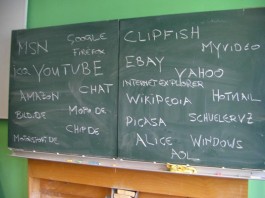 MSN
GOOGLE
FIREFOX
ICQ YOUTUBE
AMAZON
CHAT
BILD.DE
CHIP.DE
CLIPFISH
MYVIDEO
EBAY
YAHOO
INTERNET EXPLORER
WIKIPEDIA
HOTMAIL
PICASA
SCHUELERVZ
ALICE
WINDOWS
AOL